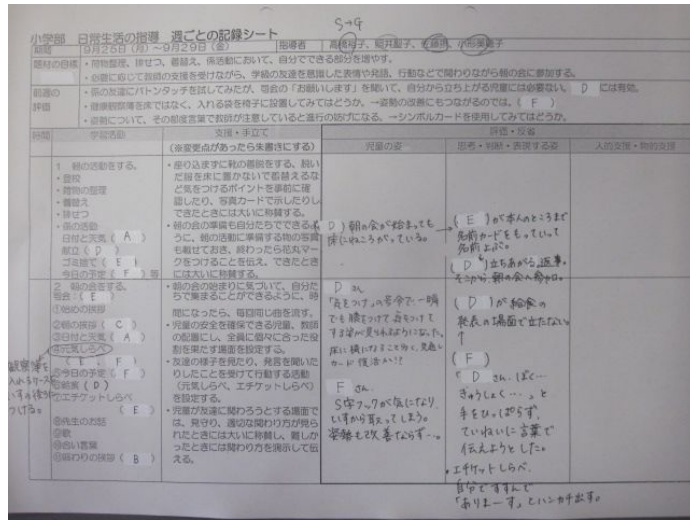 S→G
小学部 日常生活の指導 週ごとの記録シート
期間 9月25日(月)~9月29日(金) 指導者
題材の目標 ・荷物整理、排せつ、着替え、係活動において、自分でできる部分を増やす。
・必要に応じて教師の支援を受けながら、学級の友達を意識した表情や発語、行動などで関わりながら朝の会に参加する。
前週の評価 ・係の友達にバトンタッチを試してみたが、司会の「お願いします」を聞いて、自分から立ち上がる児童には必要ない。 D には有効。
・健康観察簿を床ではなく、入れる袋を椅子に設置してみてはどうか。→姿勢の改善にもつながるのでは。( F )
・姿勢について、その都度言葉で教師が注意していると進行の妨げになる。→シンボルカードを使用してみてはどうか。
時間 学習活動 支援・手立て 評価・反省
(※変更点があったら朱書きにする) 児童の姿 思考・判断・表現する姿 人的支援・物的支援
1 朝の活動をする。
・登校
・荷物の整理
・着替え
・排せつ
・係の活動
日付と天気( A )
献立( D )
ゴミ捨て( E )
今日の予定( F )等
・座り込まずに靴の着脱をする、脱いだ服を床に置かないで着替えるなど気をつけるポイントを事前に確認したり、写真カードで示したりしてできたときには大いに称賛する。
・朝の会の準備も自分たちでできるように、朝の活動に準備する物の写真も載せておき、終わったら花丸マークをつけることを伝え、できたときには大いに称賛する。
( D )朝の会が始まっても
床にねころがっている。
→( E )が本人のところまで
名前カードをもっていって
名前よぶ。
( D )立ちあがる,返事。
そこから,朝の会へ参加。
2 朝の会をする。
司会:( E )
①始めの挨拶
②朝の挨拶( C )
③日付と天気( A )
④元気しらべ
( E F )
⑤今日の予定( F )
⑥給食( D )
⑦エチケットしらべ
( E )
⑧先生のお話
⑨歌
⑩合い言葉
⑪終わりの挨拶( B )
観察簿を
入れるケースを
いすの後ろに
つける。
・朝の会の始まりに気づいて、自分たちで集まることができるように、時間になったら、毎回同じ曲を流す。
・児童の安全を確保できる児童、教師の配置にし、全員に個々に合った役割を果たす場面を設定する。
・友達の様子を見たり、発言を聞いたりしたことを受けて行動する活動(元気しらべ、エチケットしらべ)を設定する。
・児童が友達に関わろうとする場面では、見守り、適切な関わり方が見られたときには大いに称賛し、難しかったときには関わり方を演示して伝える。
D さん
「気をつけ」の号令で一瞬
でも膝をつけて気をつけ
する姿が見られるようになった。
床に横になること少く、見通し
カード復活か!!
F さん.
S字フックが気になり
いすから取ってしまう。
姿勢も改善ならず…。
( D )が給食の
発表の場面で立たない。
( F )
「 D さん、ぼく…
ぎゅうしょく…、」と
手をひっぱらず、
ていねいに言葉で
伝えようとした。
・エチケットしらべ.
自分ですすんで
「ありまーす」とハンカチ出す。